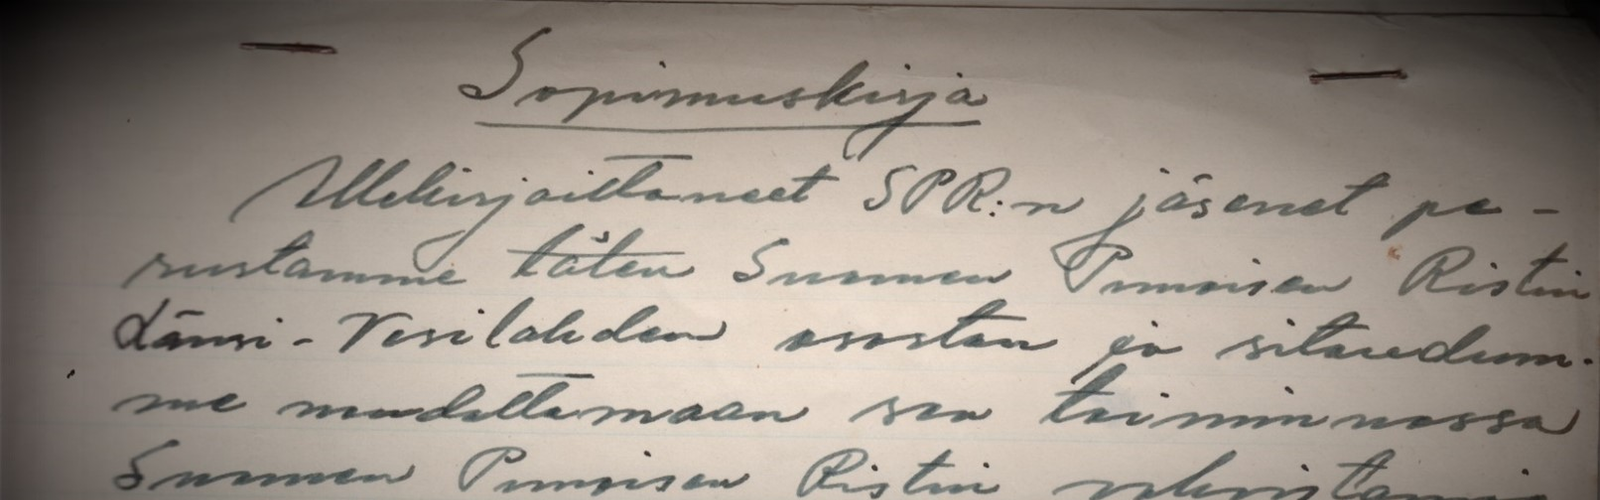 Sopimuskirja
Allekirjoittaneet SPR:n jäsenet pe-
rustamme täten Suomen Punaisen Ristin
Länsi-Vesilahden osaston ja sitoudum-
me noudattamaan sen toiminnassa
Suomen Punaisen Ristin